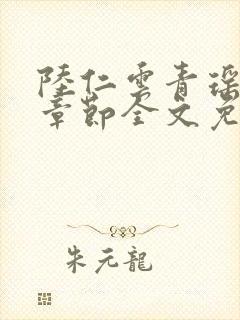 陸仁雲青瑤
章節全文免
朱元龍